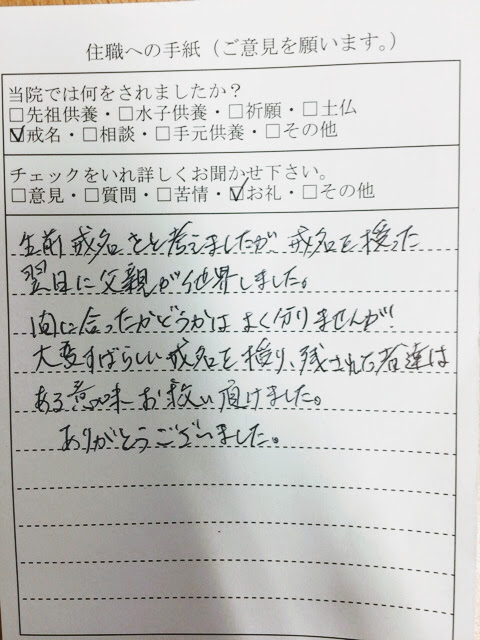 住職への手紙（ご意見を願います。）
当院では何をされましたか？
□先祖供養・□水子供養・□祈願・□土仏
☑戒名・□相談・□手元供養・□その他
チェックをいれ詳しくお聞かせ下さい。
□意見・□質問・□苦情・☑お礼・□その他
生前戒名をと考えましたが、戒名を授った
翌日に父親が他界しました。
間に合ったかどうかはよく分りませんが
大変すばらしい戒名を授り、残された者達は
ある意味お救い頂けました。
ありがとうございました。